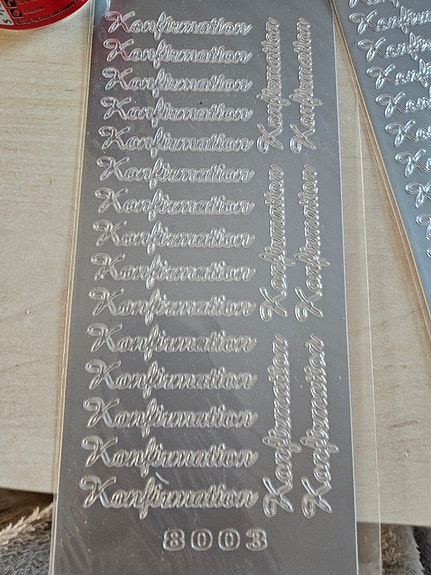 Konfirmation
Konfirmation
Konfirmation
Konfirmation
Konfirmation
Konfirmation
Konfirmation
Konfirmation
Konfirmation
Konfirmation
Konfirmation
Konfirmation
Konfirmation
Konfirmation
Konfirmation
Konfirmation
Konfirmation
Konfirmation
Konfirmation
Konfirmation
Konfirmation
8003